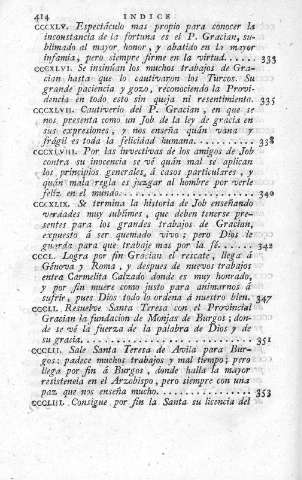 414 INDICE
CCCXLV. Espectáculo mas propio para conocer la
inconstancia de la fortuna es el P. Gracian, su-
blimado al mayor honor, y abatido en la mayor
infamia, pero siempre firme en la virtud...... 333
CCCXLVI. Se insinúan los muchos trabajos de Gra-
cian hasta que lo cautivaron los Turcos. Su
grande paciencia y gozo, reconociendo la Provi-
dencia en todo esto sin queja ni resentimiento. 335
CCCXLVII. Cautiverio del P. Gracian, en que se
nos presenta como un Job de la ley de gracia en
sus expresiones, y nos enseña quán vana y
frágil es toda la felicidad humana............ 338
CCCXLVIII. Por las invectivas de los amigos de Job
contra su inocencia se vé quán mal se aplican
los principios generales, á casos particulares, y
quán mala regla es juzgar al hombre por verle
feliz en el mundo...................... 340
CCCXLIX. Se termina la historia de Job enseñando
verdades muy sublimes, que deben tenerse pre-
sentes para los grandes trabajos de Gracian,
expuesto á ser quemado vivo; pero Dios le
guarda para que trabaje mas por la fé....... 342
CCCL. Logra por fin Gracian el rescate, llega á
Génova y Roma, y despues de nuevos trabajos
entra Carmelita Calzado donde es muy honrado,
y por fin muere como justo para animarnos á
sufrir, pues Dios todo lo ordena á nuestro bien. 347
CCCLI. Resuelve Santa Teresa con el Provincial
Gracian la fundacion de Monjas de Burgos; don-
de se vé la fuerza de la palabra de Dios y de
su gracia............................ 351
CCCLII. Sale Santa Teresa de Avila para Bur-
gos: padece muchos trabajos y mal tiempo; pero
llega por fin á Burgos, donde halla la mayor
resistencia en el Arzobispo, pero siempre con una
paz que nos enseña mucho................ 353
CCCLIII. Consigue por fin la Santa su licencia del